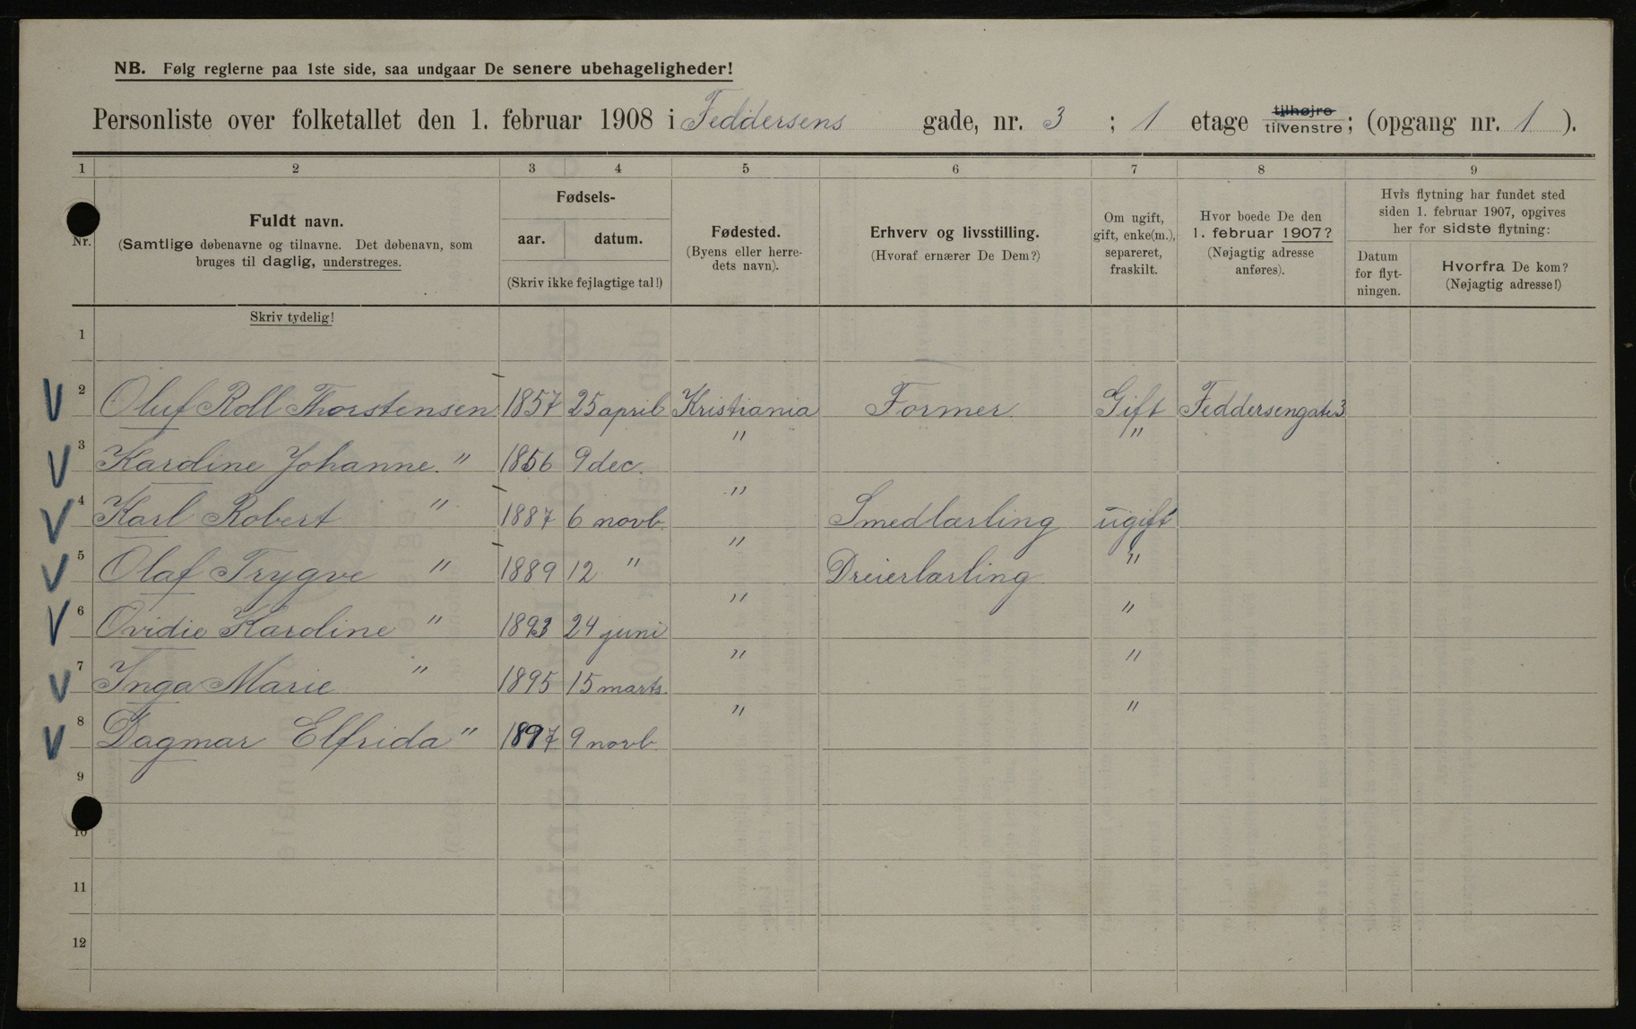 NB. Følg reglerne paa 1ste side, saa undgaar De senere ubehageligheder!
Personliste over folketallet den 1. februar 1908 i Feddersens gade, nr. 3 ; 1 etage tilhøjre tilvenstre; (opgang nr. 1 ).
1 2 3 4 5 6 7 8 9
Nr.
Fuldt navn.
(Samtlige døbenavne og tilnavne. Det døbenavn, som
bruges til daglig, understreges.
Fødsels-
aar. datum.
(Skriv ikke fejlagtige tal!)
Fødested.
(Byens eller herre-
dets navn).
Erhverv og livsstilling.
(Hvoraf ernærer De Dem?)
Om ugift,
gift, enke(m.),
separeret,
fraskilt.
Hvor boede De den
1. februar 1907?
(Nøjagtig adresse
anføres).
Hvis flytning har fundet sted
siden 1. februar 1907, opgives
her for sidste flytning:
Datum
for flyt-
ningen.
Hvorfra De kom?
(Nøjagtig adresse!)
Skriv tydelig!
1
2 Oluf Roll Thorstensen 1857 25 april Kristiania Former Gift Feddersengate 3
3 Karoline Johanne. " 1856 9 dec. " "
4 Karl Robert " 1887 6 novb. " Smedlærling ugift
5 Olaf Trygve " 1889 12 " " Dreierlærling "
6 Ovidie Karoline " 1893 24 juni " "
7 Inga Marie " 1895 15 marts. " "
8 Dagmar Elfrida " 1897 9 novb. " "
9
10
11
12